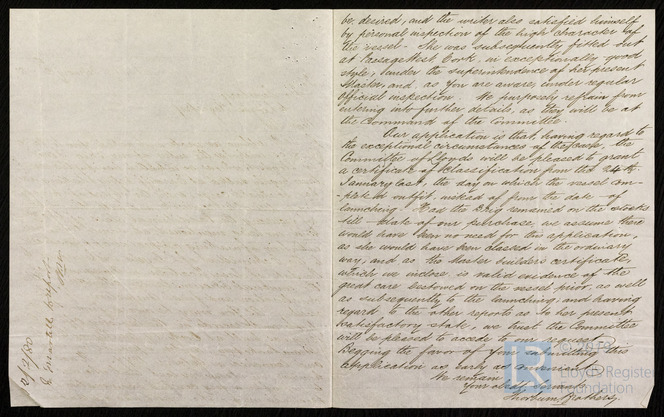 be desired, and the writer also satisfied himself
by personal inspection of the high character of
the vessel - She was subsequently fitted out
at Passage West Cork, in exceptionally good
style, under the superintendence of her present
Master, and, as you are aware, under regular
official inspection. We purposely refrain from
entering into further details, as they will be at
the command of the Committee.
Our application is that, having regard to
the exceptional circumstances of the case, the
Committee of Lloyds will be pleased to grant
a certificate of Classification from the 24th
January last, the day on which the vessel com-
-pleted outfit, instead of from the date of
launching - Had the Brig remained on the stocks
till date of our purchase, we assume there
would have been no need for this application,
as she would have been classed in the ordinary
way, and as the Master builders certificate,
which we inclose, is valid evidence of the
great care bestowed on the vessel prior, as well
as subsequently to the launching, and having
regard to the other reports as to her present
satisfactory state, we trust the Committee
will be pleased to accede to our request.
Begging the favor of your submitting this
application as early as convenient
We remain
Your obedt servants
Thorburn Brothers
2/2/80
© 2019
LR
Lloyd's Register
Foundation